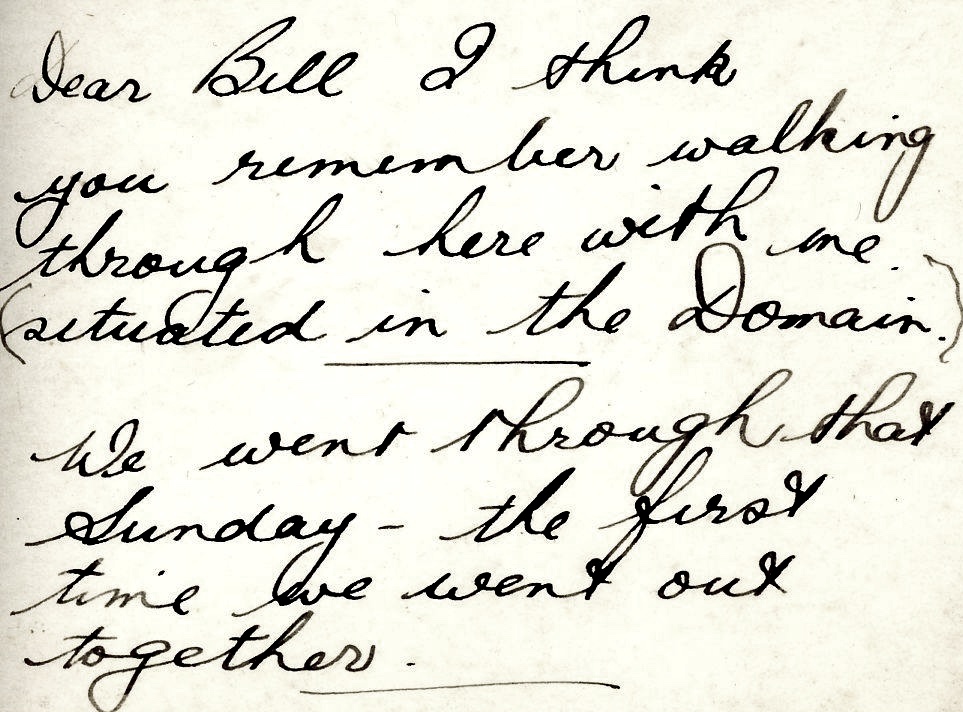 Dear Bill I think
you remember walking
through here with me.
(situated in the Domain.)
We went through that
Sunday - the first
time we went out
together.